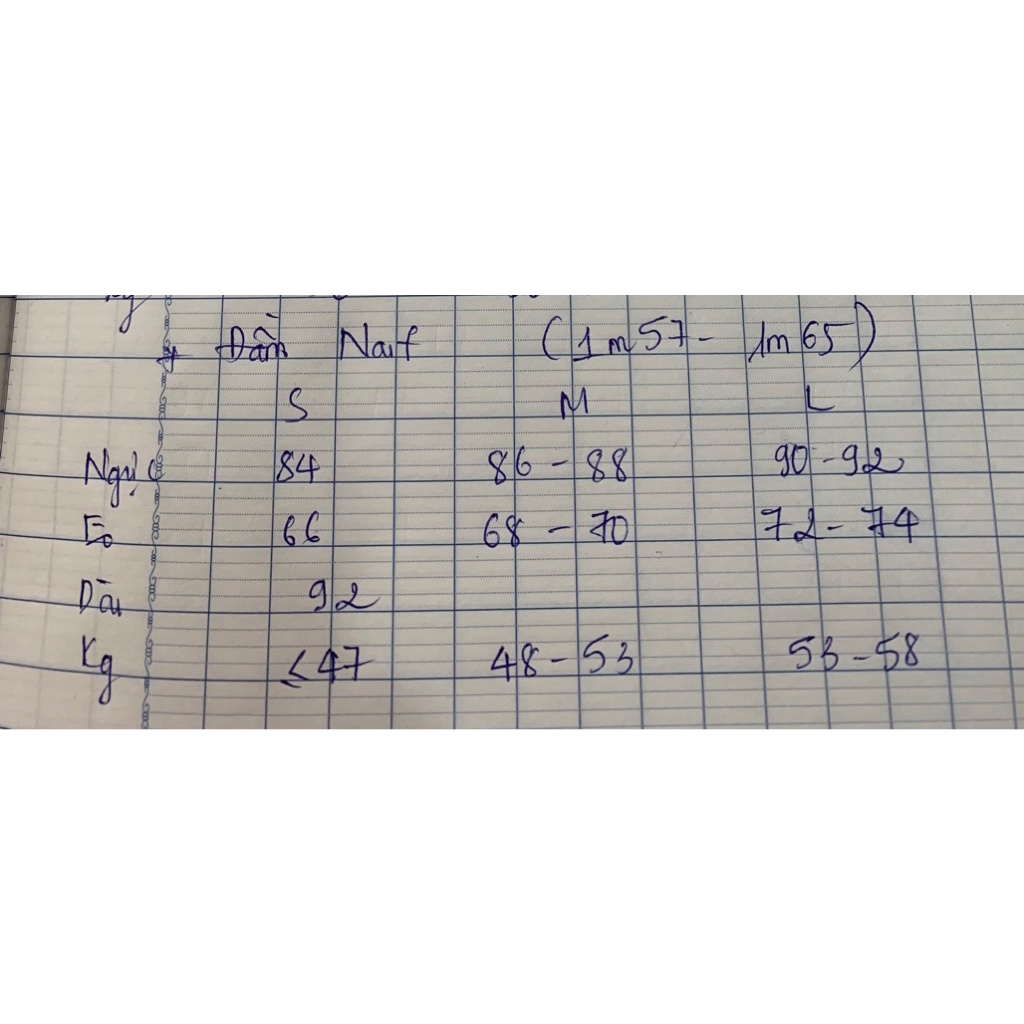 Đầm Naif (1m57 - 1m65)
S M L
Ngực 84 86 - 88 90 - 92
Eo 66 68 - 70 72 - 74
Dài 92
Kg ≤47 48 - 53 53 - 58